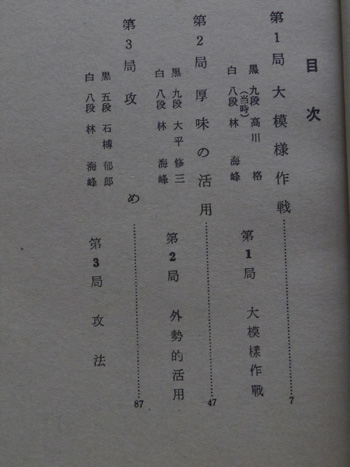 目次
第1局 大模樣作戦 7
黒 九段 高川 格
(当時)
白 八段 林 海峰
第1局 大模樣作戰
第2局 厚味の活用 47
黒 九段 大平修三
白 八段 林 海峰
第2局 外勢的活用
第3局 攻め 87
黒 五段 石榑郁郎
白 八段 林 海峰
第3局 攻法